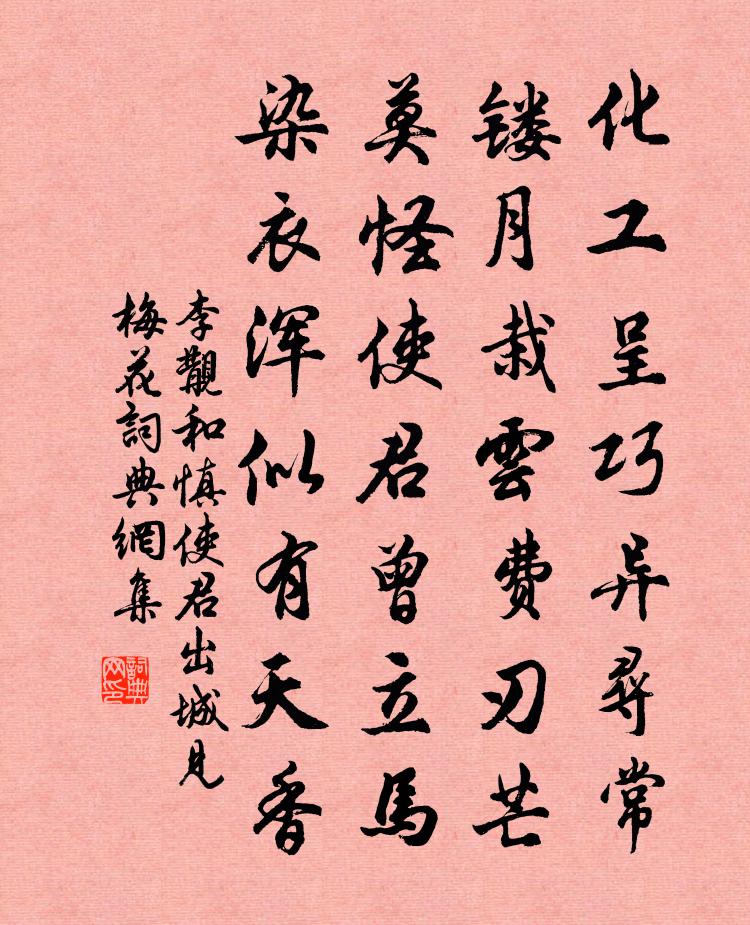 化工呈巧异尋常
镂月栽雲費刃芒
莫怪使君曾立馬
染衣浑似有天香
李觏和慎使君出城見
梅花詞典網集
詞典網印